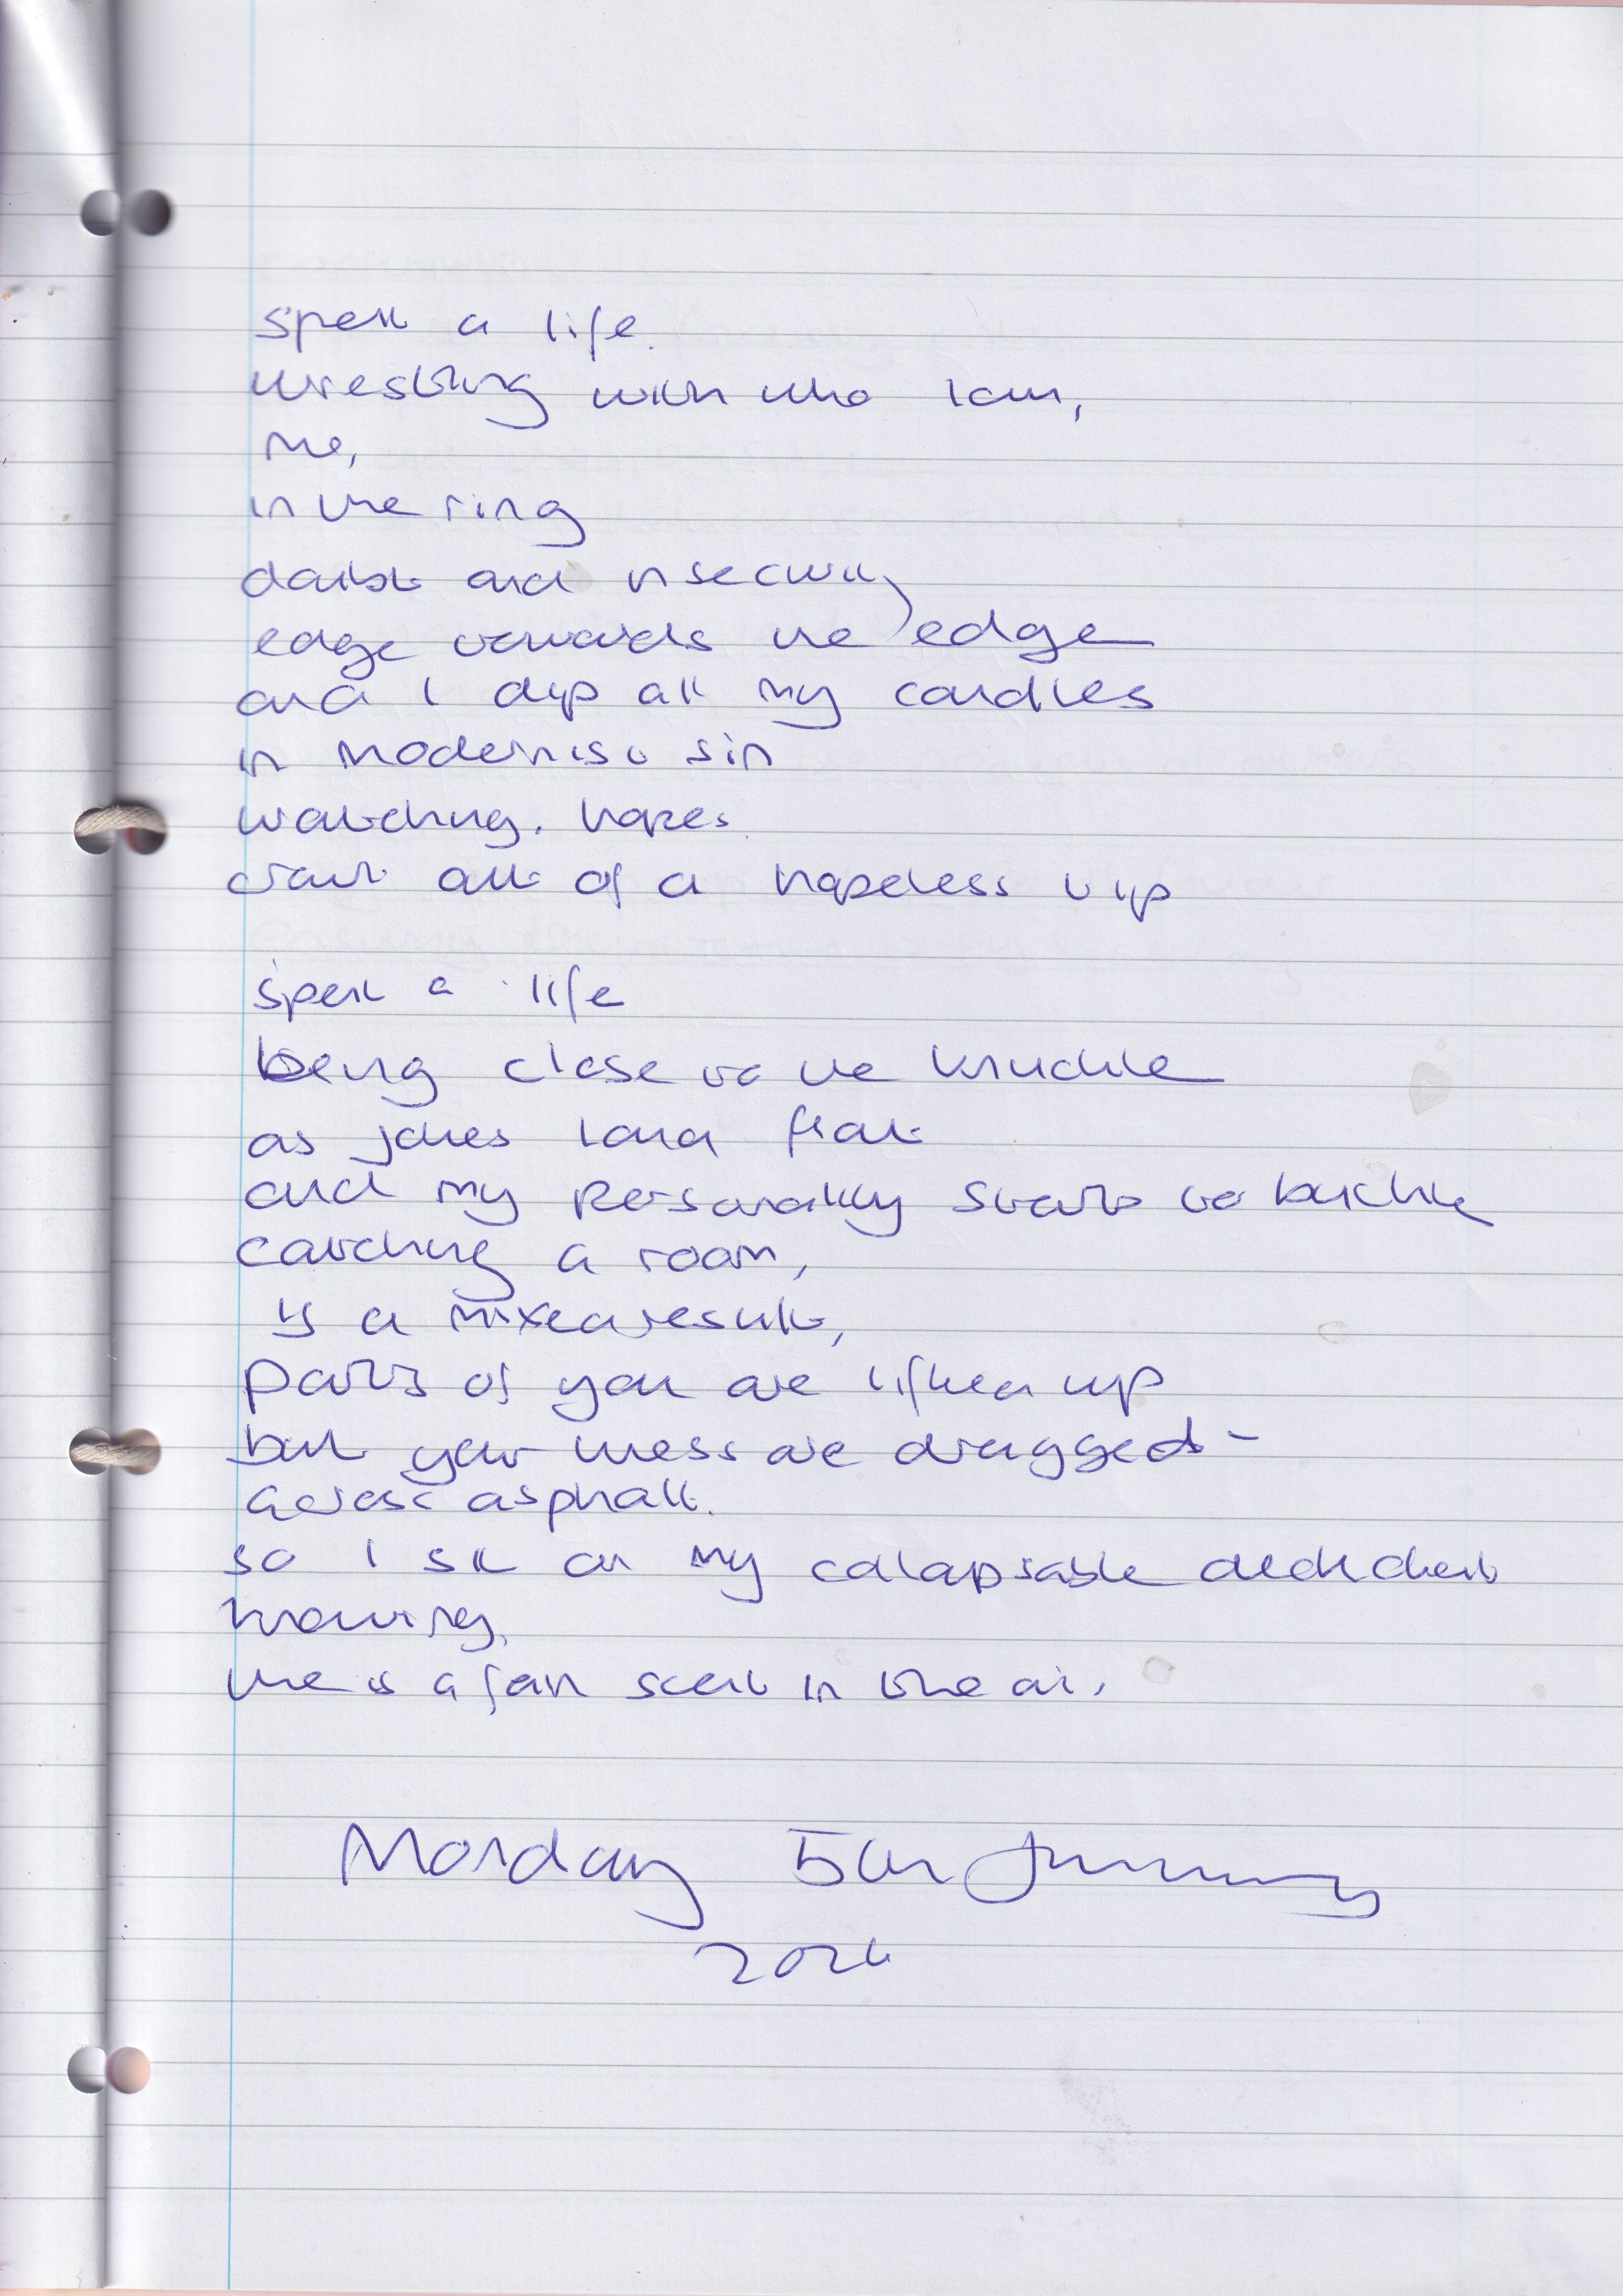 spent a life
wrestling with who I am,
me,
in the ring
doubt and insecurity
edge towards the edge
and I dip all my candles
in modernist sin
watching. hopes
crawl out of a hopeless
spent a life
being close to the knuckle
as jokes land flat
and my personality starts to buckle
catching a room,
is a mixed result,
parts of you are lifted up
but your are dragged -
across asphalt.
so I sit on my collapsable deckchair
knowing,
there is a scent in the air.
Monday 5th January